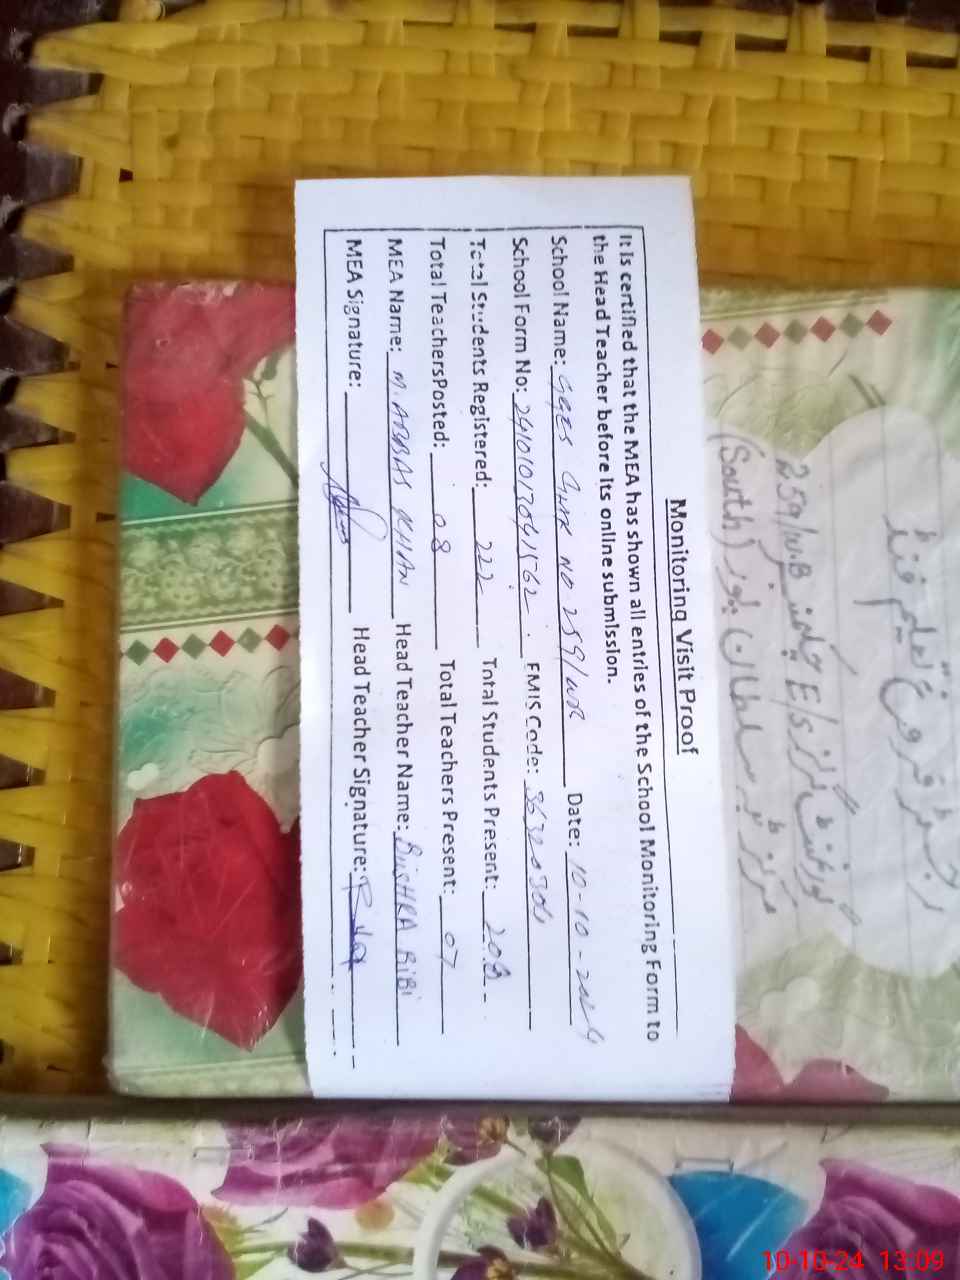 Monitoring Visit Proof
It is certified that the MEA has shown all entries of the School Monitoring Form to
the Head Teacher before its online submission.
School Name: GGES CHK NO 259/WB Date: 10-10-2024
School Form No: 24101013041562 EMIS Code: 36320304
Total Students Registered: 222 Total Students Present: 208
Total TeachersPosted: 08 Total Teachers Present: 07
MEA Name: M. ABBAS KHAN Head Teacher Name: BUSHRA BiBi
MEA Signature: Head Teacher Signature:
رجسٹر فروغ تعلیم فنڈ
گورنمنٹ گرلز E/S چکنمبر 259/W.B
مرکز نمبر سلطان پور (South)
10-10-24 13:09